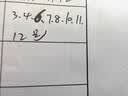 3.4.6.7.8.10.11.
12월